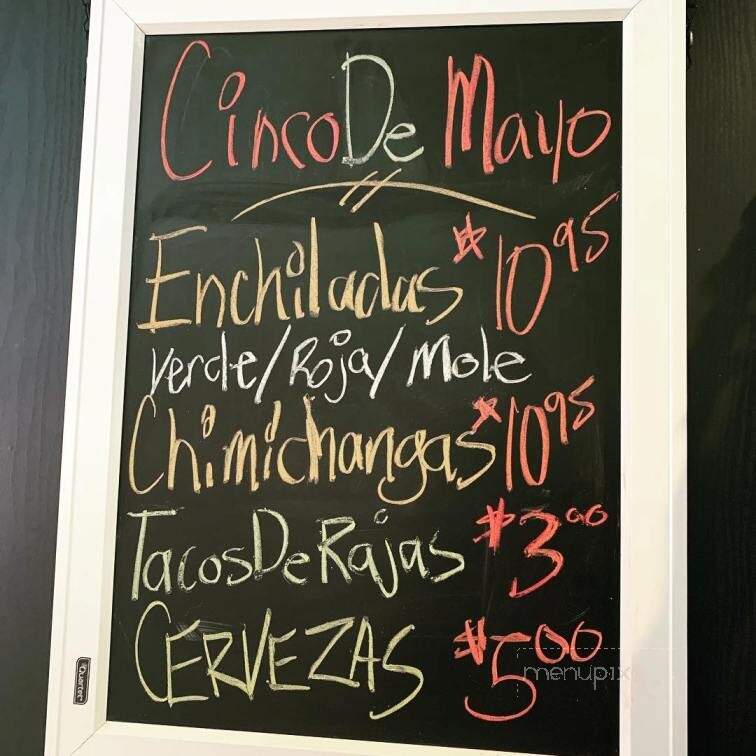 Cinco De Mayo
Enchiladas $10.95
Verde/Roja/Mole
Chimichangas $10.95
Tacos De Rajas $3.00
CERVEZAS $5.00
menupix
Quartet